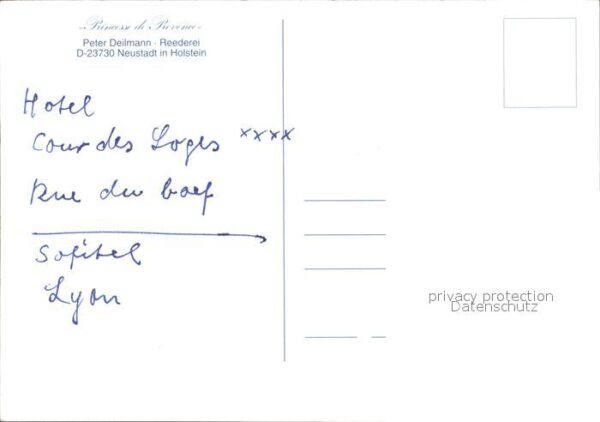 Princesse de Provence
Peter Deilmann · Reederei
D-23730 Neustadt in Holstein
Hotel
Cour des Loges xxxx
Rue du boef
Sofitel
Lyon
privacy protection
Datenschutz